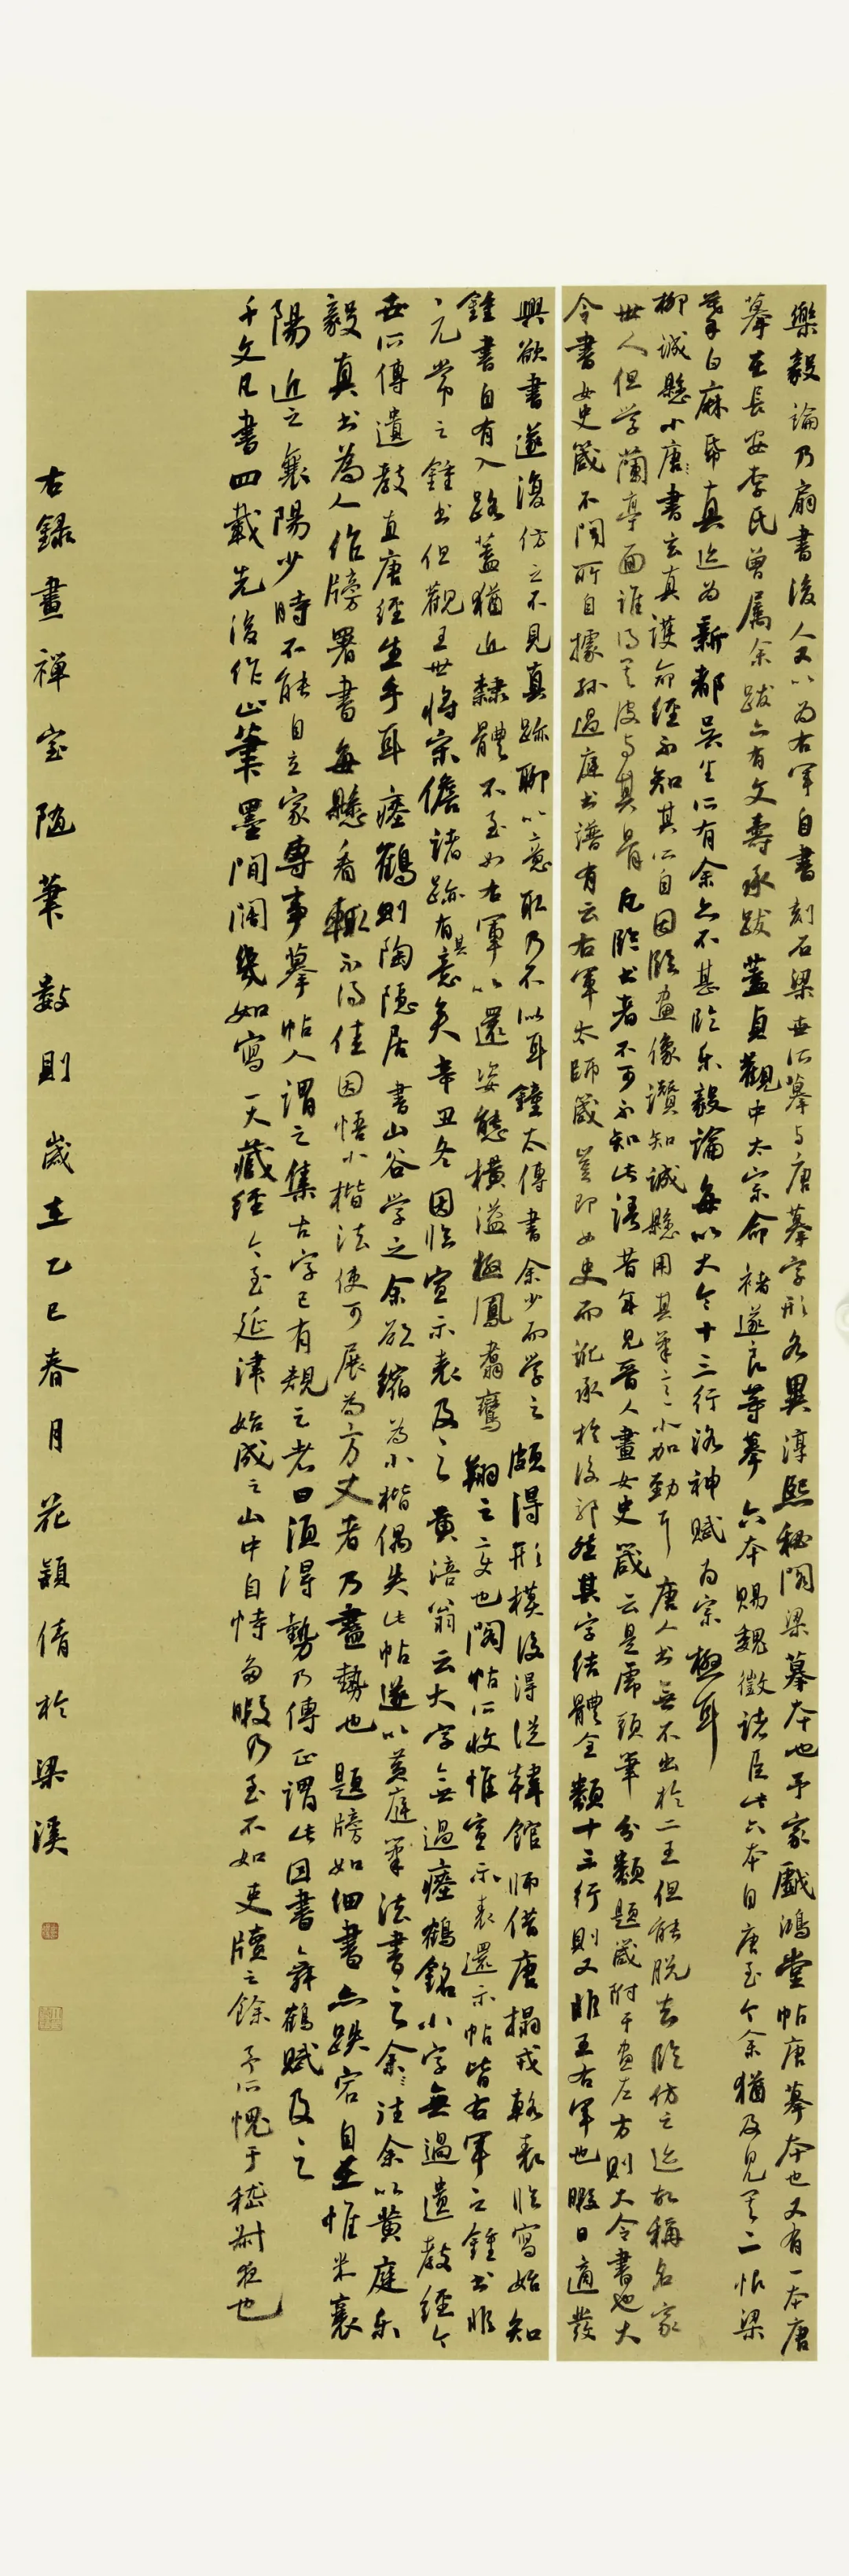 樂毅論乃扇書後人又以為右軍自書刻石梁世所摹與唐摹字形各異淳熙秘閣梁摹本也予家戲鴻堂帖唐摹本也又有一本唐
摹在長安李氏曾屬余跋亦有文壽承跋蓋貞觀中太宗命褚遂良等摹六本賜魏徵諸臣此六本自唐至今余猶及見其二惟梁
摹白麻帋真迹為新都吳生所有余亦不甚臨樂毅論每以大令十三行洛神賦為宗極耳
柳誠懸小唐書玄真護命經不知其所自因臨畫像讚知誠懸用其筆意小加勁耳唐人書無不出於二王但能脫去臨仿之迹故稱名家
世人但學蘭亭面誰得其皮與其骨凡臨書者不可不知此語昔年見晉人畫女史箴云是虎頭筆分類題箴附于畫左方則大令書也大
令書女史箴不聞所自據孫過庭書譜有云右軍太師箴豈即女史而訛承於後耶然其字結體全類十三行則又非王右軍也暇日適發
興欲書遂復仿之不見真跡聊以意取乃不似耳鐘太傅書余少而學之頗得形模後得從韓館師借唐搨戎輅表臨寫始知
鍾書自有入路蓋猶近隸體不至如右軍以還姿態橫溢極鳳翥鸞翔之變也閣帖所收惟宣示表還示帖皆右軍之鍾書非
元常之鍾書但觀王世將宋儋諸跡有其意矣辛丑冬因臨宣示表及之黃涪翁云大字無過瘞鶴銘小字無過遺教經今
世所傳遺教直唐經生手耳瘞鶴則陶隱居書山谷學之余欲縮為小楷偶失此帖遂以黃庭筆法書之余往余以黃庭樂
毅真書為人作牓署書每懸看輒不得佳因悟小楷法使可展為方丈者乃盡勢也題牓如細書亦跌宕自在惟米襄
陽近之襄陽少時不能自立家專事摹帖人謂之集古字已有規之者曰須得勢乃傳正謂此因書舞鶴賦及之
千文凡書四載先後作止筆墨間闊幾如寫一大藏經今至延津始成之山中自恃多暇乃至不如吏牘之餘予所愧于嵇尉夜也
右錄畫禪室隨筆數則歲在乙巳春月花穎倩於梁溪